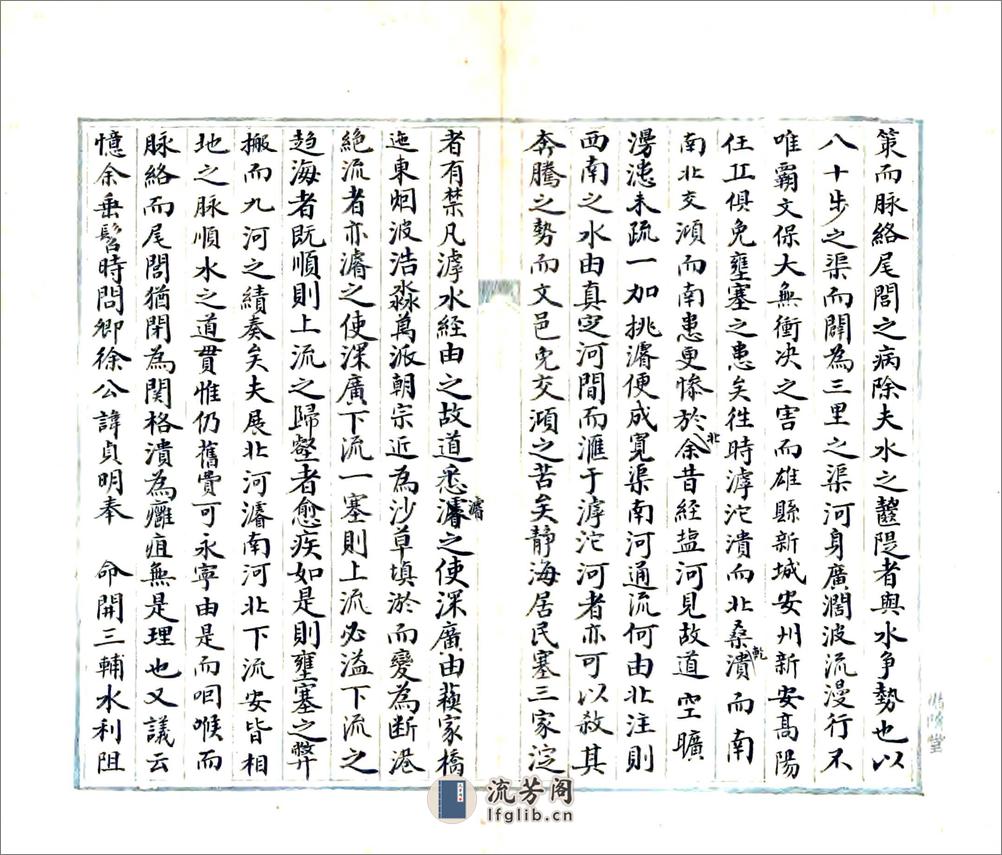 策而脉絡尾閭之病除夫水之齧隄者與水争勢也以
八十步之渠而闢為三里之渠河身廣濶波流漫行不
唯霸文保大無衝决之害而雄縣新城安州新安高陽
任丘俱免壅塞之患矣徃時滹沱潰而北桑乾潰而南
南北交澒而南患更慘於北余昔經盐河見故道空曠
漫漶未疏一加挑濬便成寛渠南河通流何由北注則
西南之水由真定河間而滙于滹沱河者亦可以殺其
奔騰之勢而文邑免交澒之苦矣靜海居民塞三家淀
者有禁凡滹水經由之故道悉濬之使深廣由蘋家橋
迤東烟波浩淼萬派朝宗近為沙草填淤而變為断港
絶流者亦濬之使深廣下流一塞則上流必溢下流之
趋海者既順則上流之歸壑者愈疾如是則壅塞之弊
搬而九河之績奏矣夫展北河濬南河北下流安皆相
地之脉順水之道貫惟仍舊費可永寧由是而咽喉而
脉絡而尾閭猶閉為関格潰為癰疽無是理也又議云
憶余垂髫時問卿徐公諱貞明奉 命開三輔水利阻
濬
流芳阁
lfglib.cn